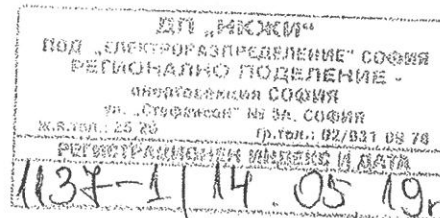 ДП „НКЖИ“
ПОД „ЕЛЕКТРОРАЗПРЕДЕЛЕНИЕ“ СОФИЯ
РЕГИОНАЛНО ПОДЕЛЕНИЕ -
СОФИЯ
ул. „Стефансон“ № 9А, СОФИЯ
Ж.П.тел.: гр.тел.: 02/931 09 78
РЕГИСТРАЦИОНЕН ИНДЕКС И ДАТА
1137-1/14.05 19г